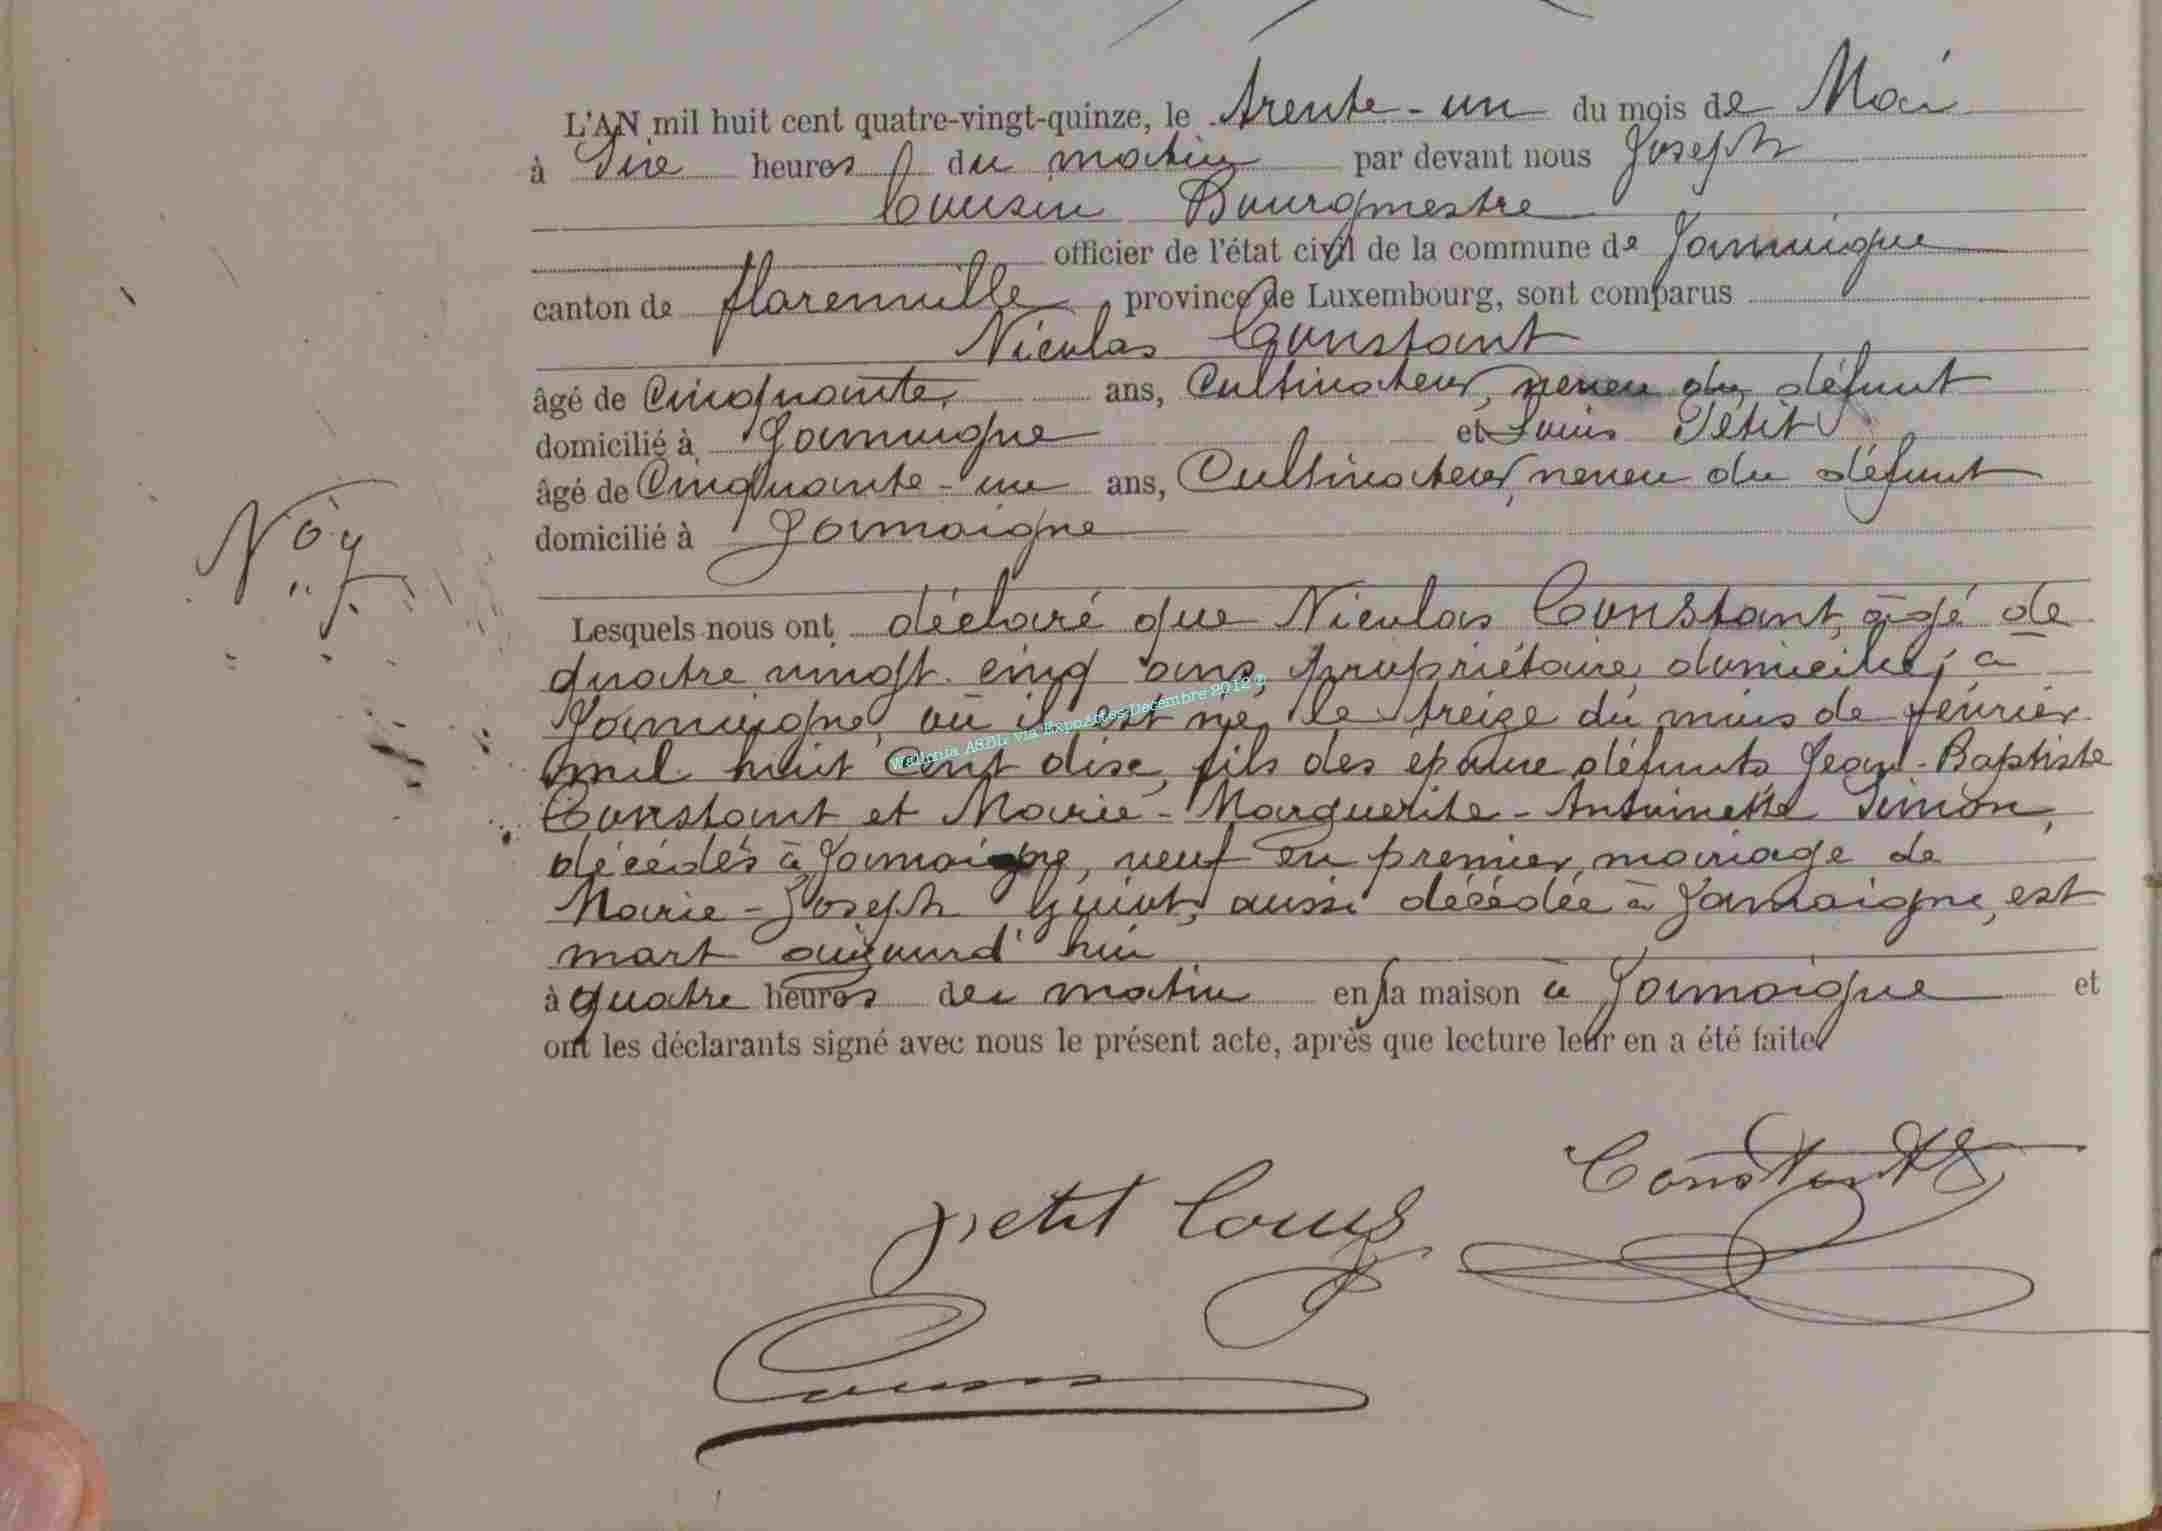 L'AN mil huit cent quatre-vingt-quinze, le trente-un du mois de Mai
à Dix heures du matin par devant nous Joseph
Cousin Bourgmestre
officier de l'état civil de la commune de Jamoigne
canton de florenville province de Luxembourg, sont comparus
Nicolas Constant
âgé de Cinquante ans, Cultivateur, neveu du défunt
domicilié à Jamoigne et Louis Petit
âgé de Cinquante-un ans, Cultivateur, neveu du défunt
domicilié à Jamoigne
N° 7
Lesquels nous ont déclaré que Nicolas Constant, âgé de
quatre vingt cinq ans, propriétaire, domicilié, à
Jamoigne, où il est né, le treize du mois de février
Wallonia ASBL via ExpoActes Decembre 2012 ©
mil huit cent dix, fils des époux défunts Jean-Baptiste
Constant et Marie-Marguerite-Antoinette Simon,
décédés à Jamoigne, veuf en premier mariage de
Marie-Joseph aussi décédée à Jamoigne, est
mort aujourd'hui
à quatre heures du matin en sa maison à Jamoigne et
ont les déclarants signé avec nous le présent acte, après que lecture leur en a été faite
Constant
petit Louis
Cousin